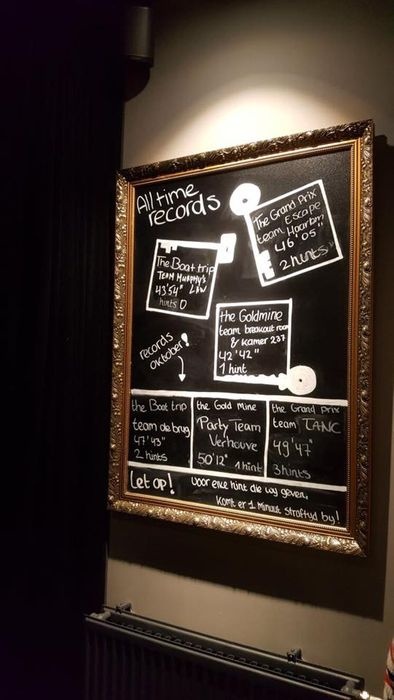 All time
records
The Grand Prix
team Escape
Haarlem
46'05"
2 hints
The Boat trip
TEAM MURPHY'S
LAW
43'54"
hints 0
the Goldmine
team breakout room
& kamer 237
42'42"
1 hint
records
oktober!
the Boat trip
team de brug
47'43"
2 hints
the Gold Mine
Party Team
Verhouve
50'12" 1 hint
the Grand Prix
team TANC
49'47"
3 hints
Let op!
Voor elke hint die wij geven,
Komt er 1 Minuut straftijd bij!